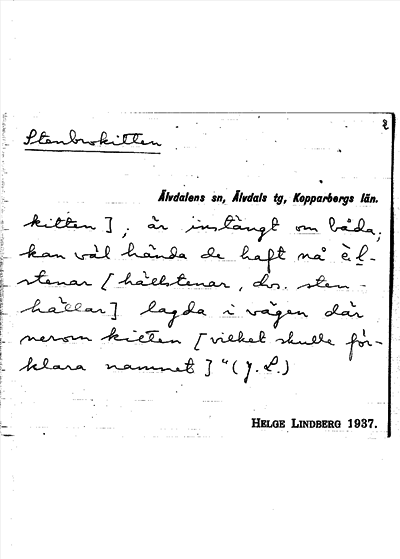 2
Stenbrokitten
Älvdalens sn, Älvdals tg, Kopparbergs län.
kitten], är instängt om båda;
kan väl hända de haft nå èl-
stenar [hällstenar, dvs. sten-
hällar] lagda i vägen där
nerom kitten [vilket skulle för-
klara namnet]" (J. L.)
HELGE LINDBERG 1937.